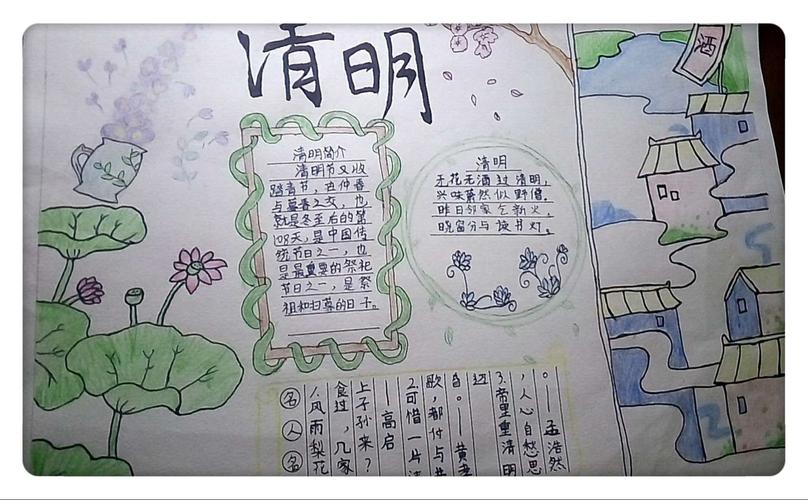 清明
清明简介
清明节又收
踏青节，在仲春
与暮春之交，也
就是冬至后的第
108天，是中国传
统节日之一，也
是最重要的祭祀
节日之一，是祭
祖和扫墓的日子。
清明
无花无酒过清明，
兴味萧然似野僧。
昨日邻家乞新火，
晓窗分与读书灯。
名人名
1.风雨梨花
食过，几家
上子孙来？
——高启
2.可惜一片
歌，都付与
昏。——黄孝
迈
3.帝里重清明
，人心自愁思
。——孟浩然